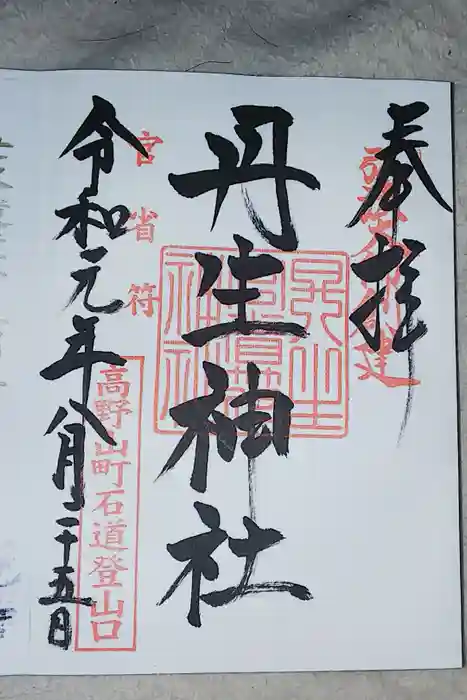 奉拝
弘法大師創建
丹生神社
官省符
令和元年八月二十五日
高野山町石道登山口